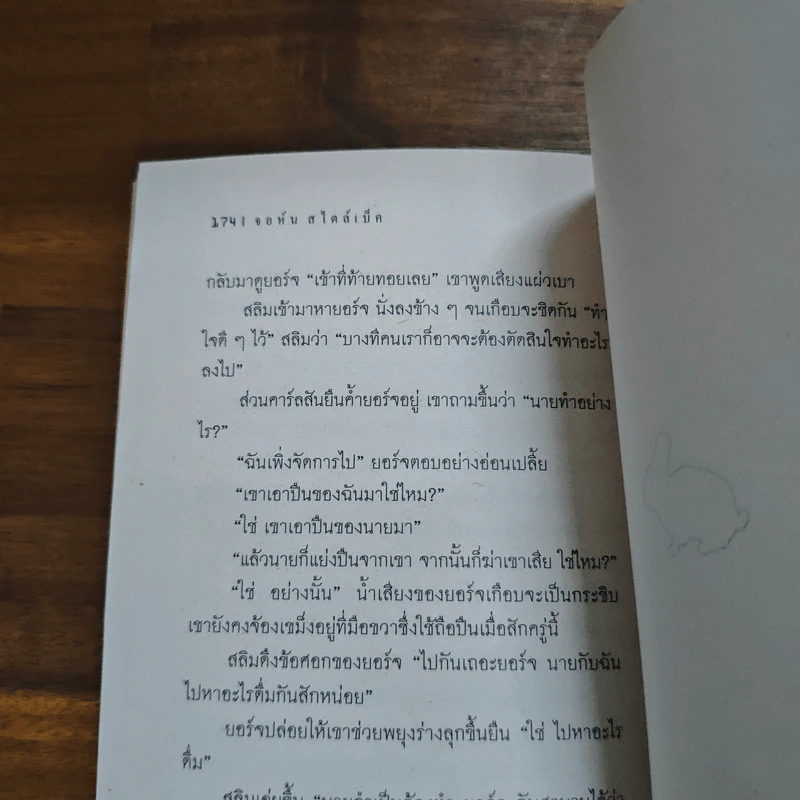 174 | จอห์น สไตล์เบ็ค
กลับมาดูยอร์จ “เข้าที่ท้ายทอยเลย” เขาพูดเสียงแผ่วเบา
สลิมเข้ามาหายอร์จ นั่งลงข้าง ๆ จนเกือบจะชิดกัน “ทำ
ใจดี ๆ ไว้” สลิมว่า “บางทีคนเราก็อาจจะต้องตัดสินใจทำอะไร
ลงไป”
ส่วนคาร์ลสันยืนค้ำยอร์จอยู่ เขาถามขึ้นว่า “นายทำอย่าง
ไร?”
“ฉันเพิ่งจัดการไป” ยอร์จตอบอย่างอ่อนเปลี้ย
“เขาเอาปืนของฉันมาใช่ไหม?”
“ใช่ เขาเอาปืนของนายมา”
“แล้วนายก็แย่งปืนจากเขา จากนั้นก็ฆ่าเขาเสีย ใช่ไหม?”
“ใช่ อย่างนั้น” น้ำเสียงของยอร์จเกือบจะเป็นกระซิบ
เขายังคงจ้องเขม็งอยู่ที่มือขวาซึ่งใช้ถือปืนเมื่อสักครู่นี้
สลิมดึงข้อศอกของยอร์จ “ไปกันเถอะยอร์จ นายกับฉัน
ไปหาอะไรดื่มกันสักหน่อย”
ยอร์จปล่อยให้เขาช่วยพยุงร่างลุกขึ้นยืน “ใช่ ไปหาอะไร
ดื่ม”